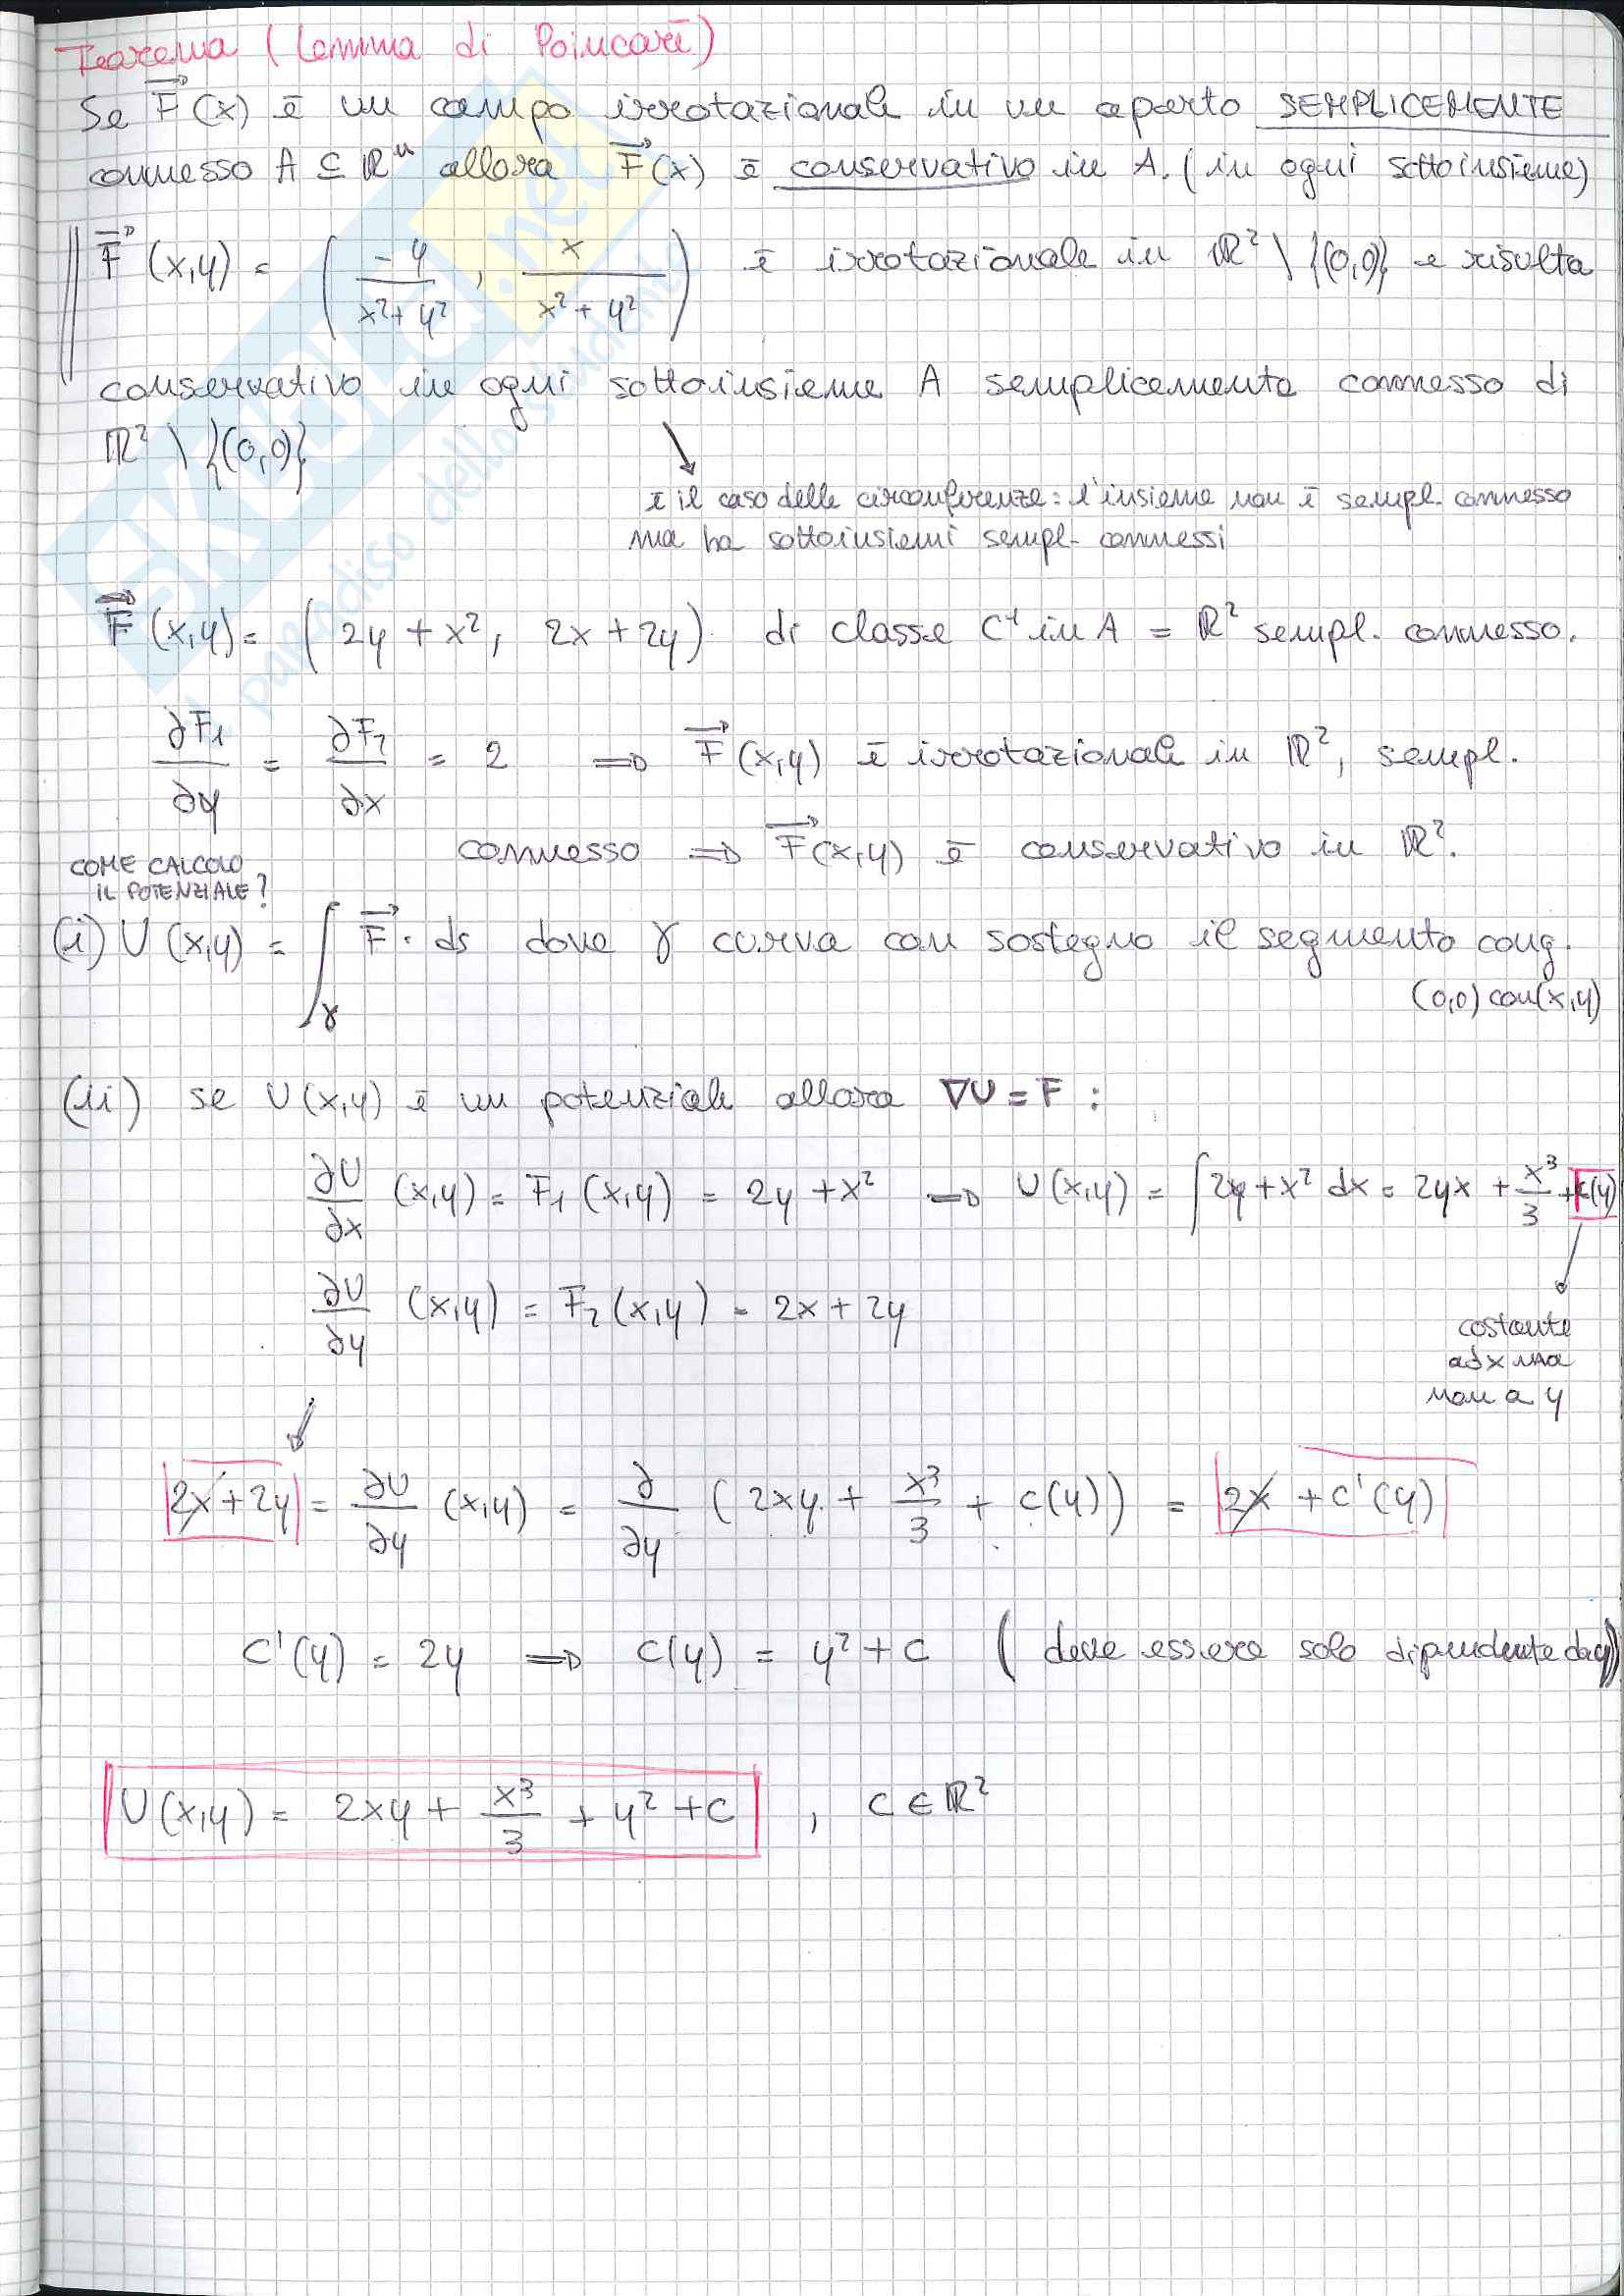 Teorema (Lemma di Poincarē)
Se F(x) ē un campo irrotazionale in un aperto SEMPLICEMENTE
connesso A ⊆ ℝⁿ allora F(x) ē conservativo in A. (in ogni sottoinsieme)
F (x,y) = ( -y / x²+y² , x / x²+y² ) ē irrotazionale in ℝ² \ {(0,0)} e risulta
conservativo in ogni sottoinsieme A semplicemente connesso di
ℝ² \ {(0,0)}
ē il caso delle circonferenze: l'insieme non ē sempl. connesso
ma ha sottoinsiemi sempl. connessi
F (x,y) = ( 2y + x² , 2x + 2y ) di classe C¹ in A = ℝ² sempl. connesso.
∂F₁/∂y = ∂F₂/∂x = 2 ⇒ F (x,y) ē irrotazionale in ℝ², sempl.
connesso ⇒ F(x,y) ē conservativo in ℝ².
COME CALCOLO
IL POTENZIALE?
(i) U (x,y) = ∫γ F · ds dove γ curva con sostegno il segmento cong.
(0,0) con (x,y)
(ii) se U(x,y) ē un potenziale allora ∇U = F :
∂U/∂x (x,y) = F₁ (x,y) = 2y + x² ⇒ U(x,y) = ∫ 2y + x² dx = 2yx + x³/3 + c(y)
∂U/∂y (x,y) = F₂ (x,y) = 2x + 2y
costante
ad x ma
non a y
2x + 2y = ∂U/∂y (x,y) = ∂/∂y ( 2xy + x³/3 + c(y) ) = 2x + c'(y)
C'(y) = 2y ⇒ c(y) = y² + c ( deve essere solo dipendente da y)
U(x,y) = 2xy + x³/3 + y² + c , c ∈ ℝ²
SKUOLA.net
il paradiso dello studente